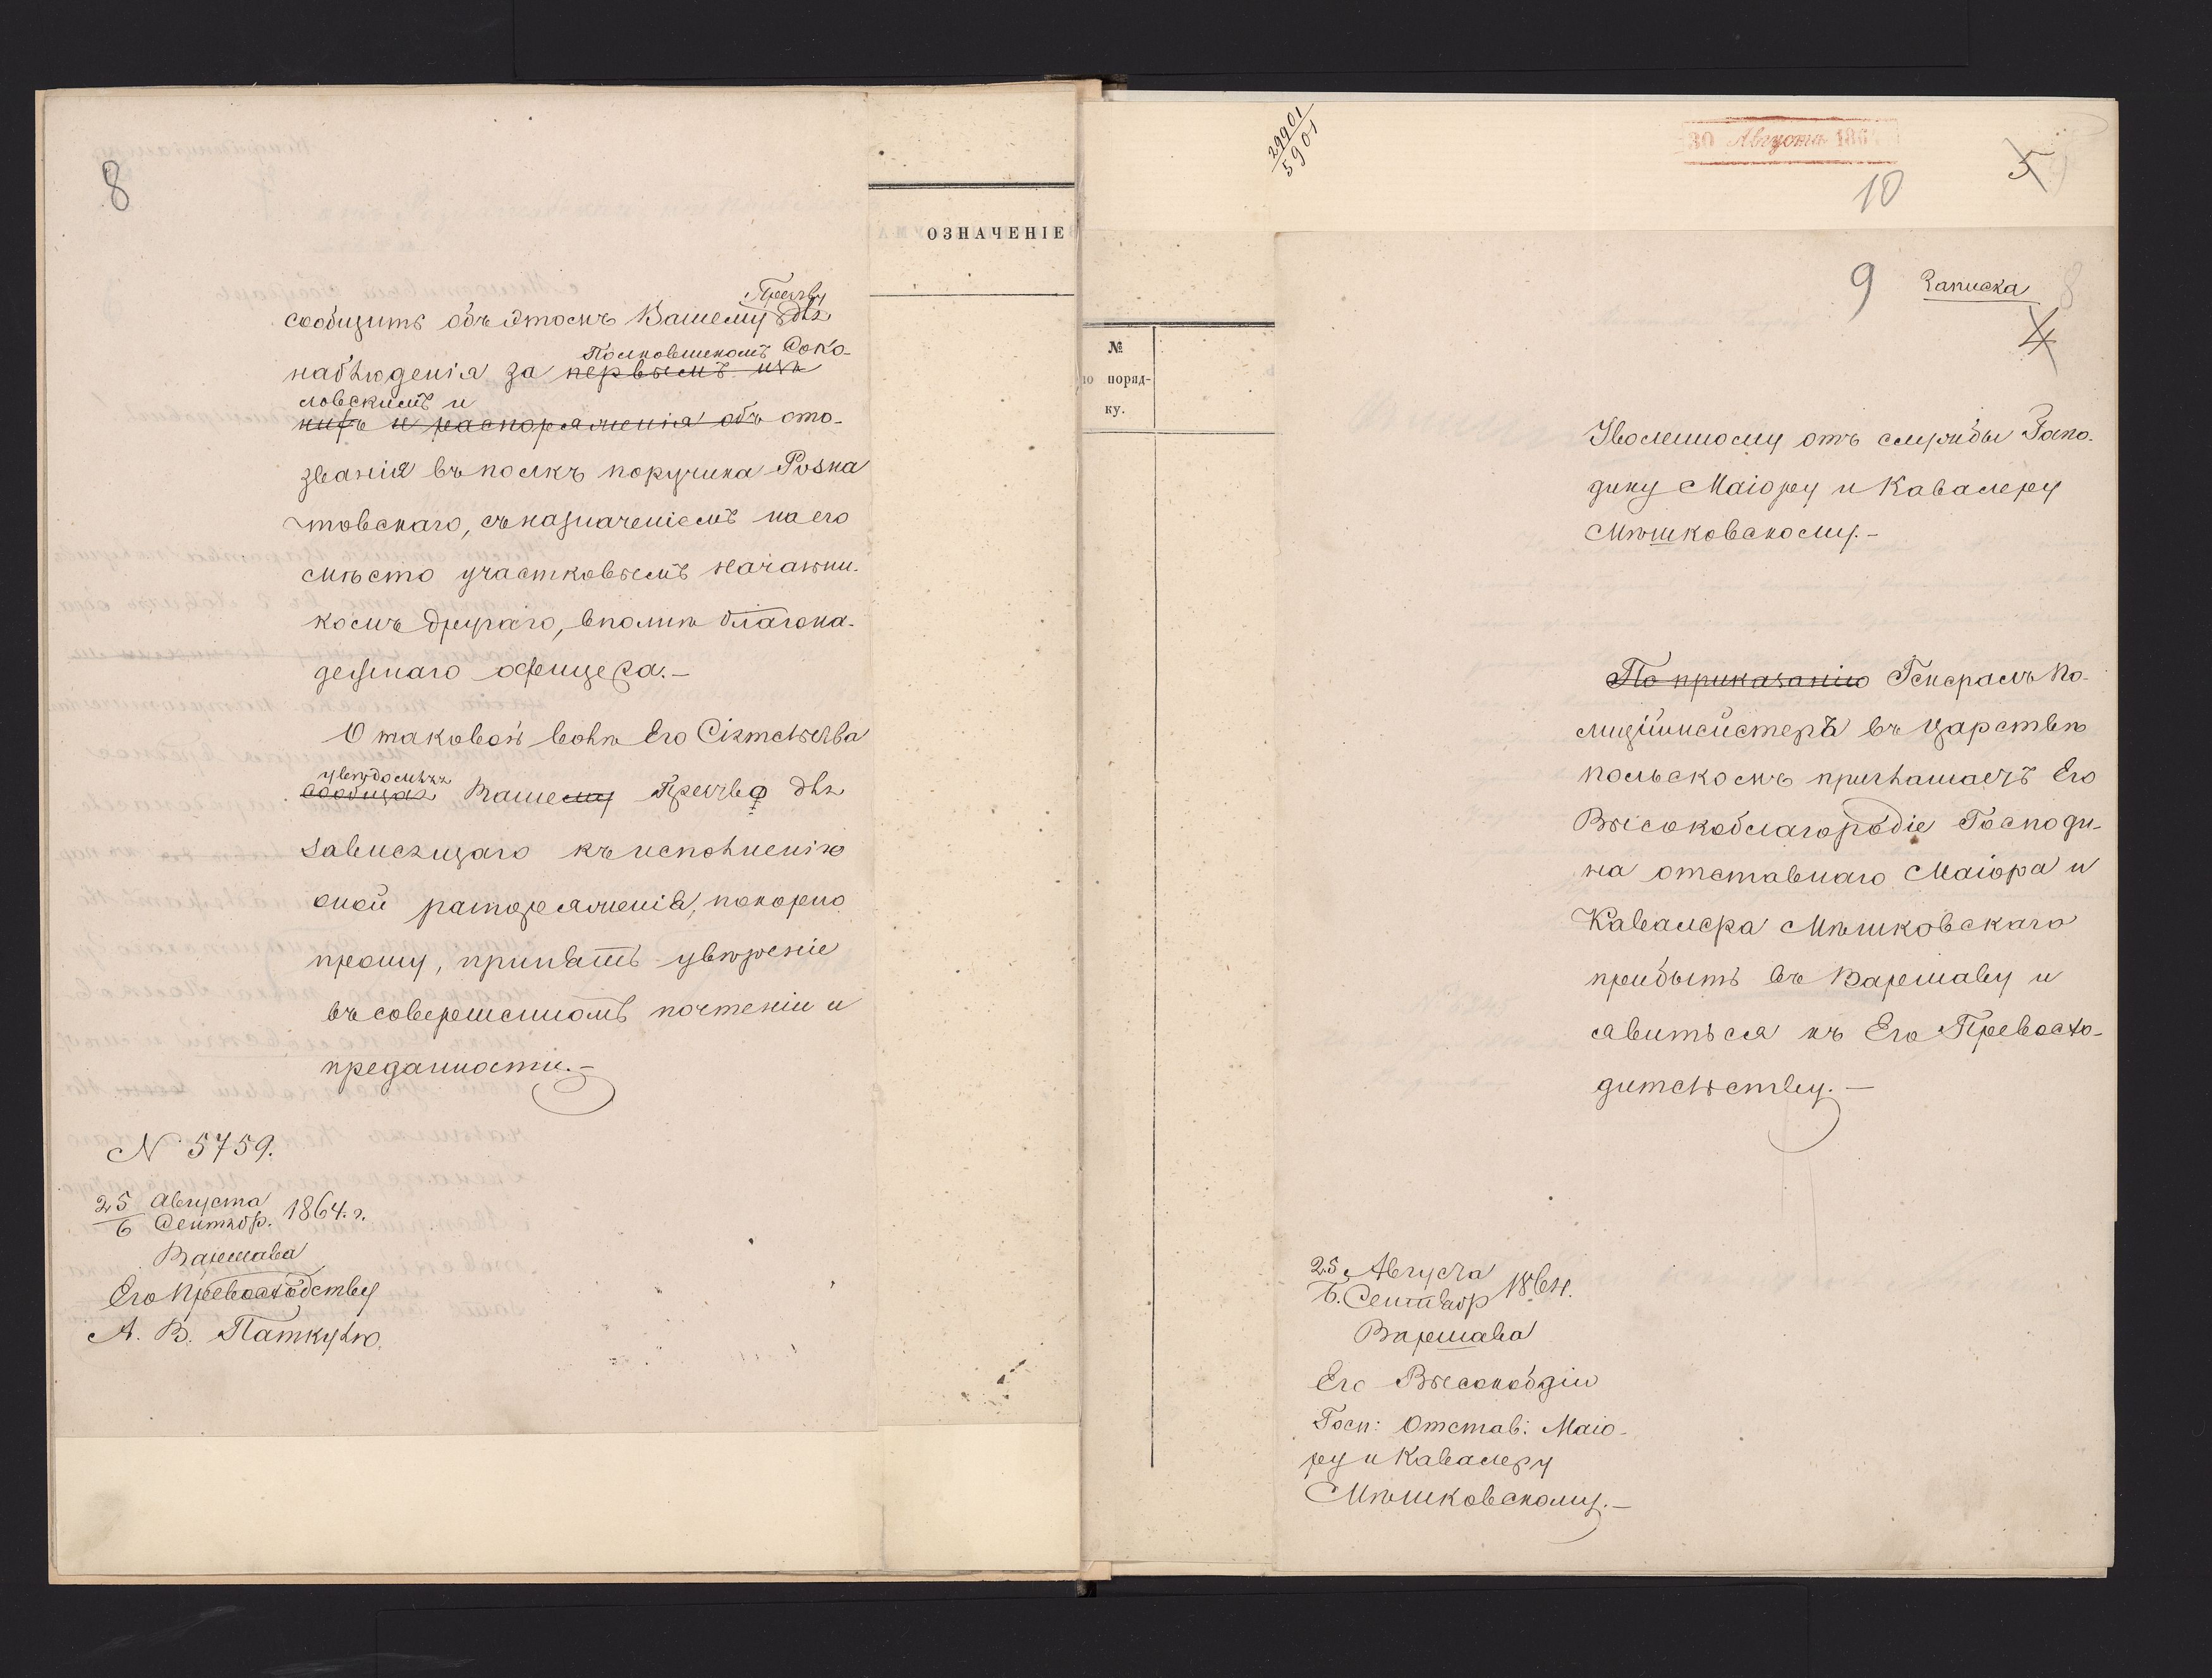 8
сообщить объ этомъ Вашему Преву для
наблюденія за первымъ изъ Полковникомъ Соко-
ловскимъ и
нихъ и распоряженія объ ото-
званія въ полкъ поручика Розна
товскаго, съ назначеніемъ на его
мѣсто участковымъ начальни-
комъ другаго, вполнѣ благона-
дежнаго офицера.-
О таковой волѣ Его Сіятельства
увѣдомляя
сообщая Вашему Прев-во для
зависящаго къ исполненію
оной распоряженія, покорно
прошу, принять увѣреніе
въ совершенномъ почтеніи и
преданности.-
N 5759.
25 Августа
6 Сентябр. 1864. г.
Варшава
Его Превосходству
А. В. Паткулю.
ОЗНАЧЕНІЕ
29901
5901
30 Августа 186
5
10
№
по поряд-
ку.
9 Записка 8
4
Уволенному отъ службы Госпо-
дину Маіору и Кавалеру
Мѣшковскому.-
По приказанію Генералъ По-
лиціймейстеръ въ Царствѣ
Польскомъ приглашаетъ Его
Высокоблагородіе Господи-
на отставнаго Маіора и
Кавалера Мѣшковскаго
прибыть въ Варшаву и
явиться къ Его Превосхо-
дительству.-
25 Августа
6. Сентябр 1864.
Варшава
Его Высокобдію
Госп: Отстав: Маіо-
ру и Кавалеру
Мѣшковскому.-